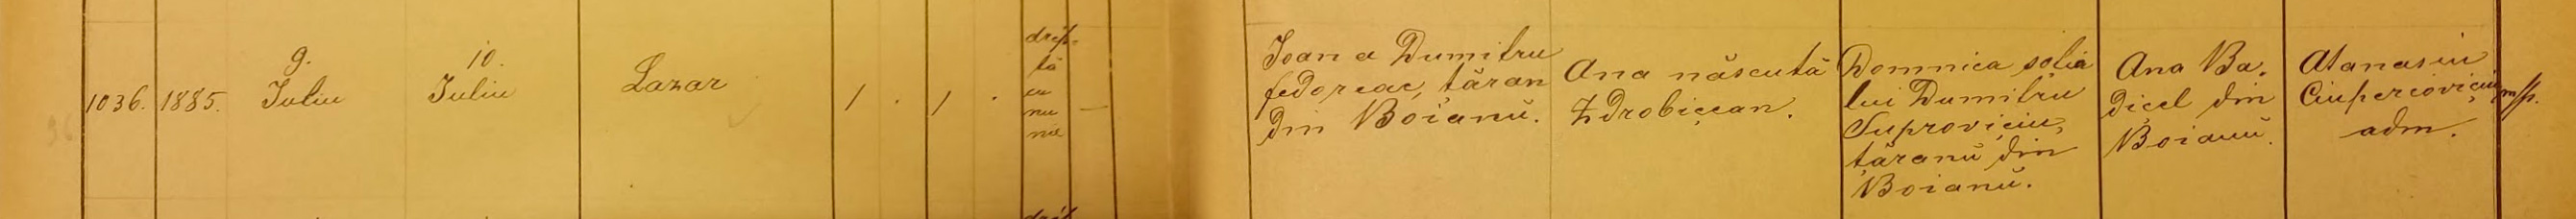 1036.
1885.
9.
Iuliu
10.
Iuliu
Lazar
1
.
1
.
drép-
tă
cu
nu
nie
—
Ioan a Dumitru
fedoreac, țăran
din Boianŭ.
Ana născută
Zdrobițean.
Domnica soția
lui Dumitru
Suproviciu,
țăranŭ din
Boianŭ.
Ana Ba-
dicel din
Boianŭ.
Atanasiu
Ciupercoviciu m/p.
adm.